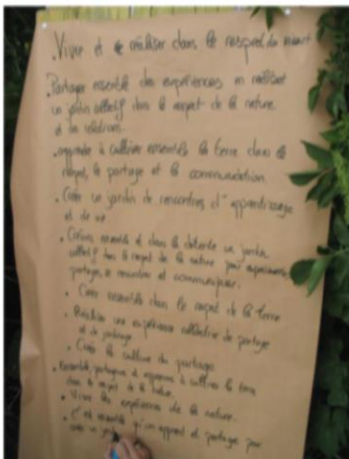 . Vivre et se réaliser dans le respect du vivant
. Partager ensemble des expériences en réalisant
un jardin collectif dans le respect de la nature
et les relations.
. apprendre à cultiver ensemble la terre dans le
respect, le partage et la communication.
. Créer un jardin de rencontres, d'apprentissage
et de vie.
. Créons ensemble et dans la détente un jardin
collectif dans le respect de la nature pour expérimenter,
partager, se rencontrer et communiquer.
. Créer ensemble dans le respect de la terre
. Réaliser une expérience collective de partage
et de jardinage
. Créer la culture du partage
. Ensemble, partageons et apprenons à cultiver la terre
dans le respect de la nature.
. Vivre les expériences de la nature.
. C'est ensemble qu'on apprend et partage pour
créer un jardin